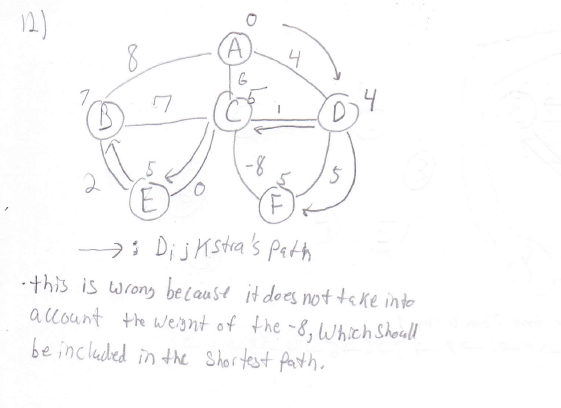 12)
0
A
8
4
6
7
B
7
C
5
1
D
4
2
5
E
0
-8
5
F
5
⟶ : Dijkstra's Path
· this is wrong because it does not take into
account the weight of the -8, which should
be included in the shortest path.